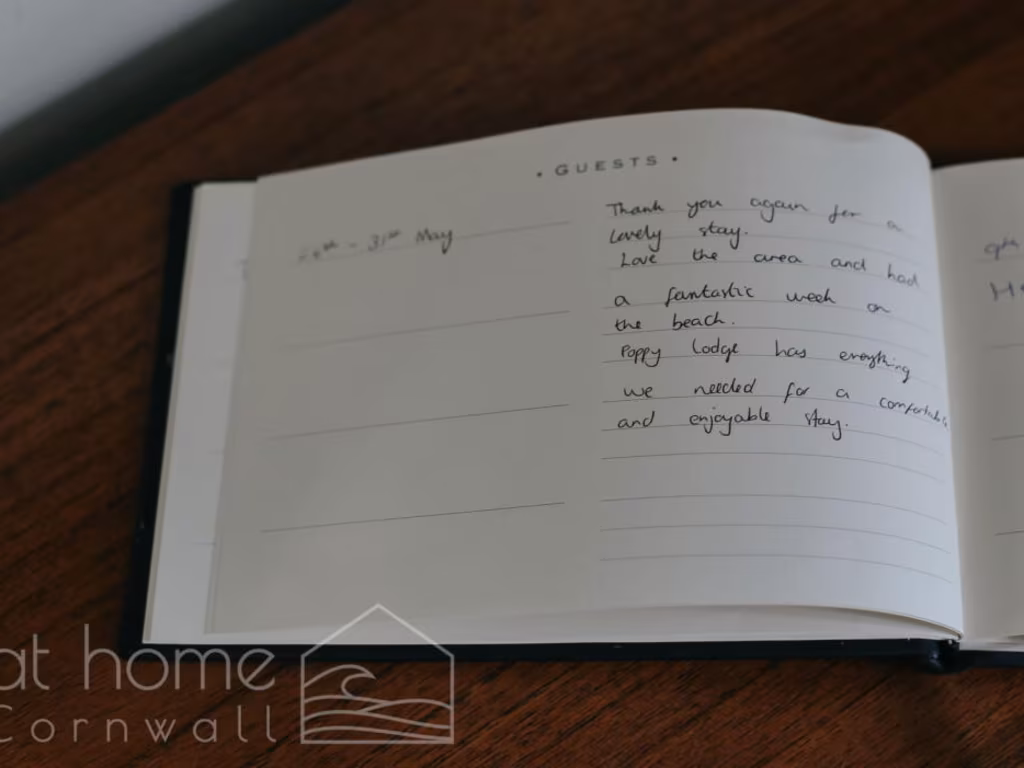 • GUESTS •
- 31st May
Thank you again for a
lovely stay.
Love the area and had
a fantastic week on
the beach.
Poppy Lodge has everything
we needed for a comfortable
and enjoyable stay.
9th
at home
Cornwall